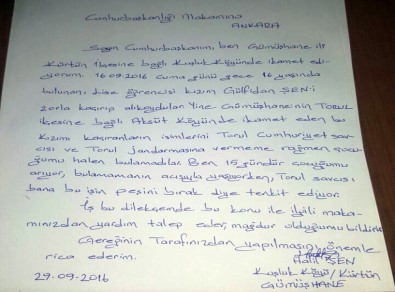 Cumhurbaşkanlığı Makamına
ANKARA
Sayın Cumhurbaşkanım, ben Gümüşhane ili
Kürtün ilçesine bağlı Kuşluk Köyünde ikamet edi-
yorum. 16.09.2016 cuma günü gece 16 yaşında
bulunan, lise öğrencisi kızım Gülfidan ŞEN'i
zorla kaçırıp alıkoydular. Yine Gümüşhane'nin TORUL
ilçesine bağlı Aksüt Köyünde ikamet eden bu
kızımı kaçıranların isimlerini Torul Cumhuriyet sav-
cısı ve Torul jandarmasına vermeme rağmen çocu-
ğumu halen bulamadılar. Ben 15 gündür çocuğumu
arıyor, bulamamanın acısıyla yaşıyorken, Torul savcısı
bana bu işin peşini bırak diye tenkit ediyor.
İş bu dilekçemde bu konu ile ilgili maka-
mınızdan yardım talep eder, mağdur olduğumu bildirir
Gereğinin Tarafınızdan yapılmasını önemle
rica ederim.
Halil ŞEN
29.09.2016
Kuşluk Köyü/Kürtün
GÜMÜŞHANE